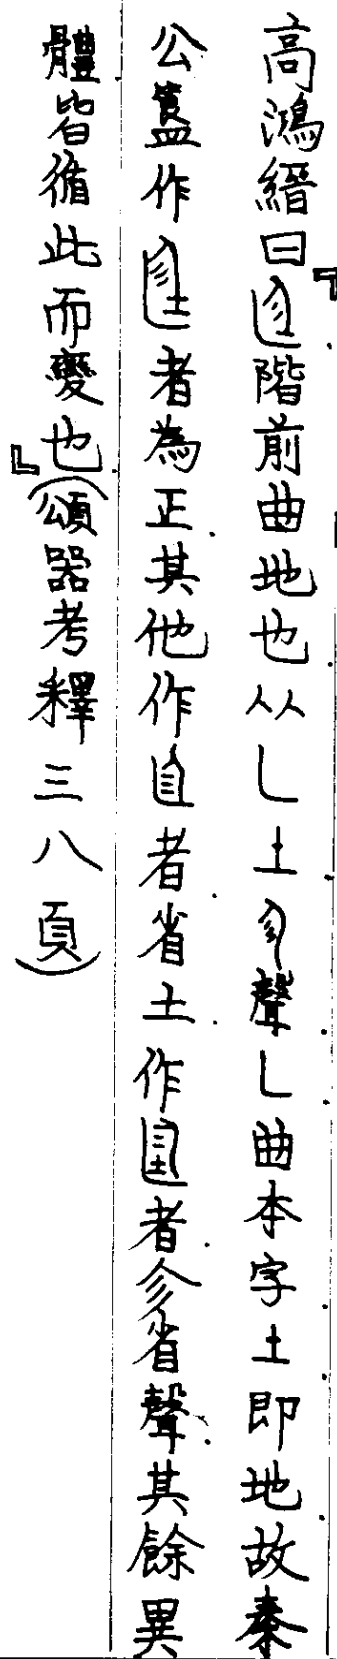 高鴻縉曰『．階前曲地也．从乚土．聲．乚．曲本字．土．即地．故秦
公簋作者為正．其他作者．省土．作者．㐱省聲．其餘異
體皆循此而變也．』(頌器考釋三八頁)